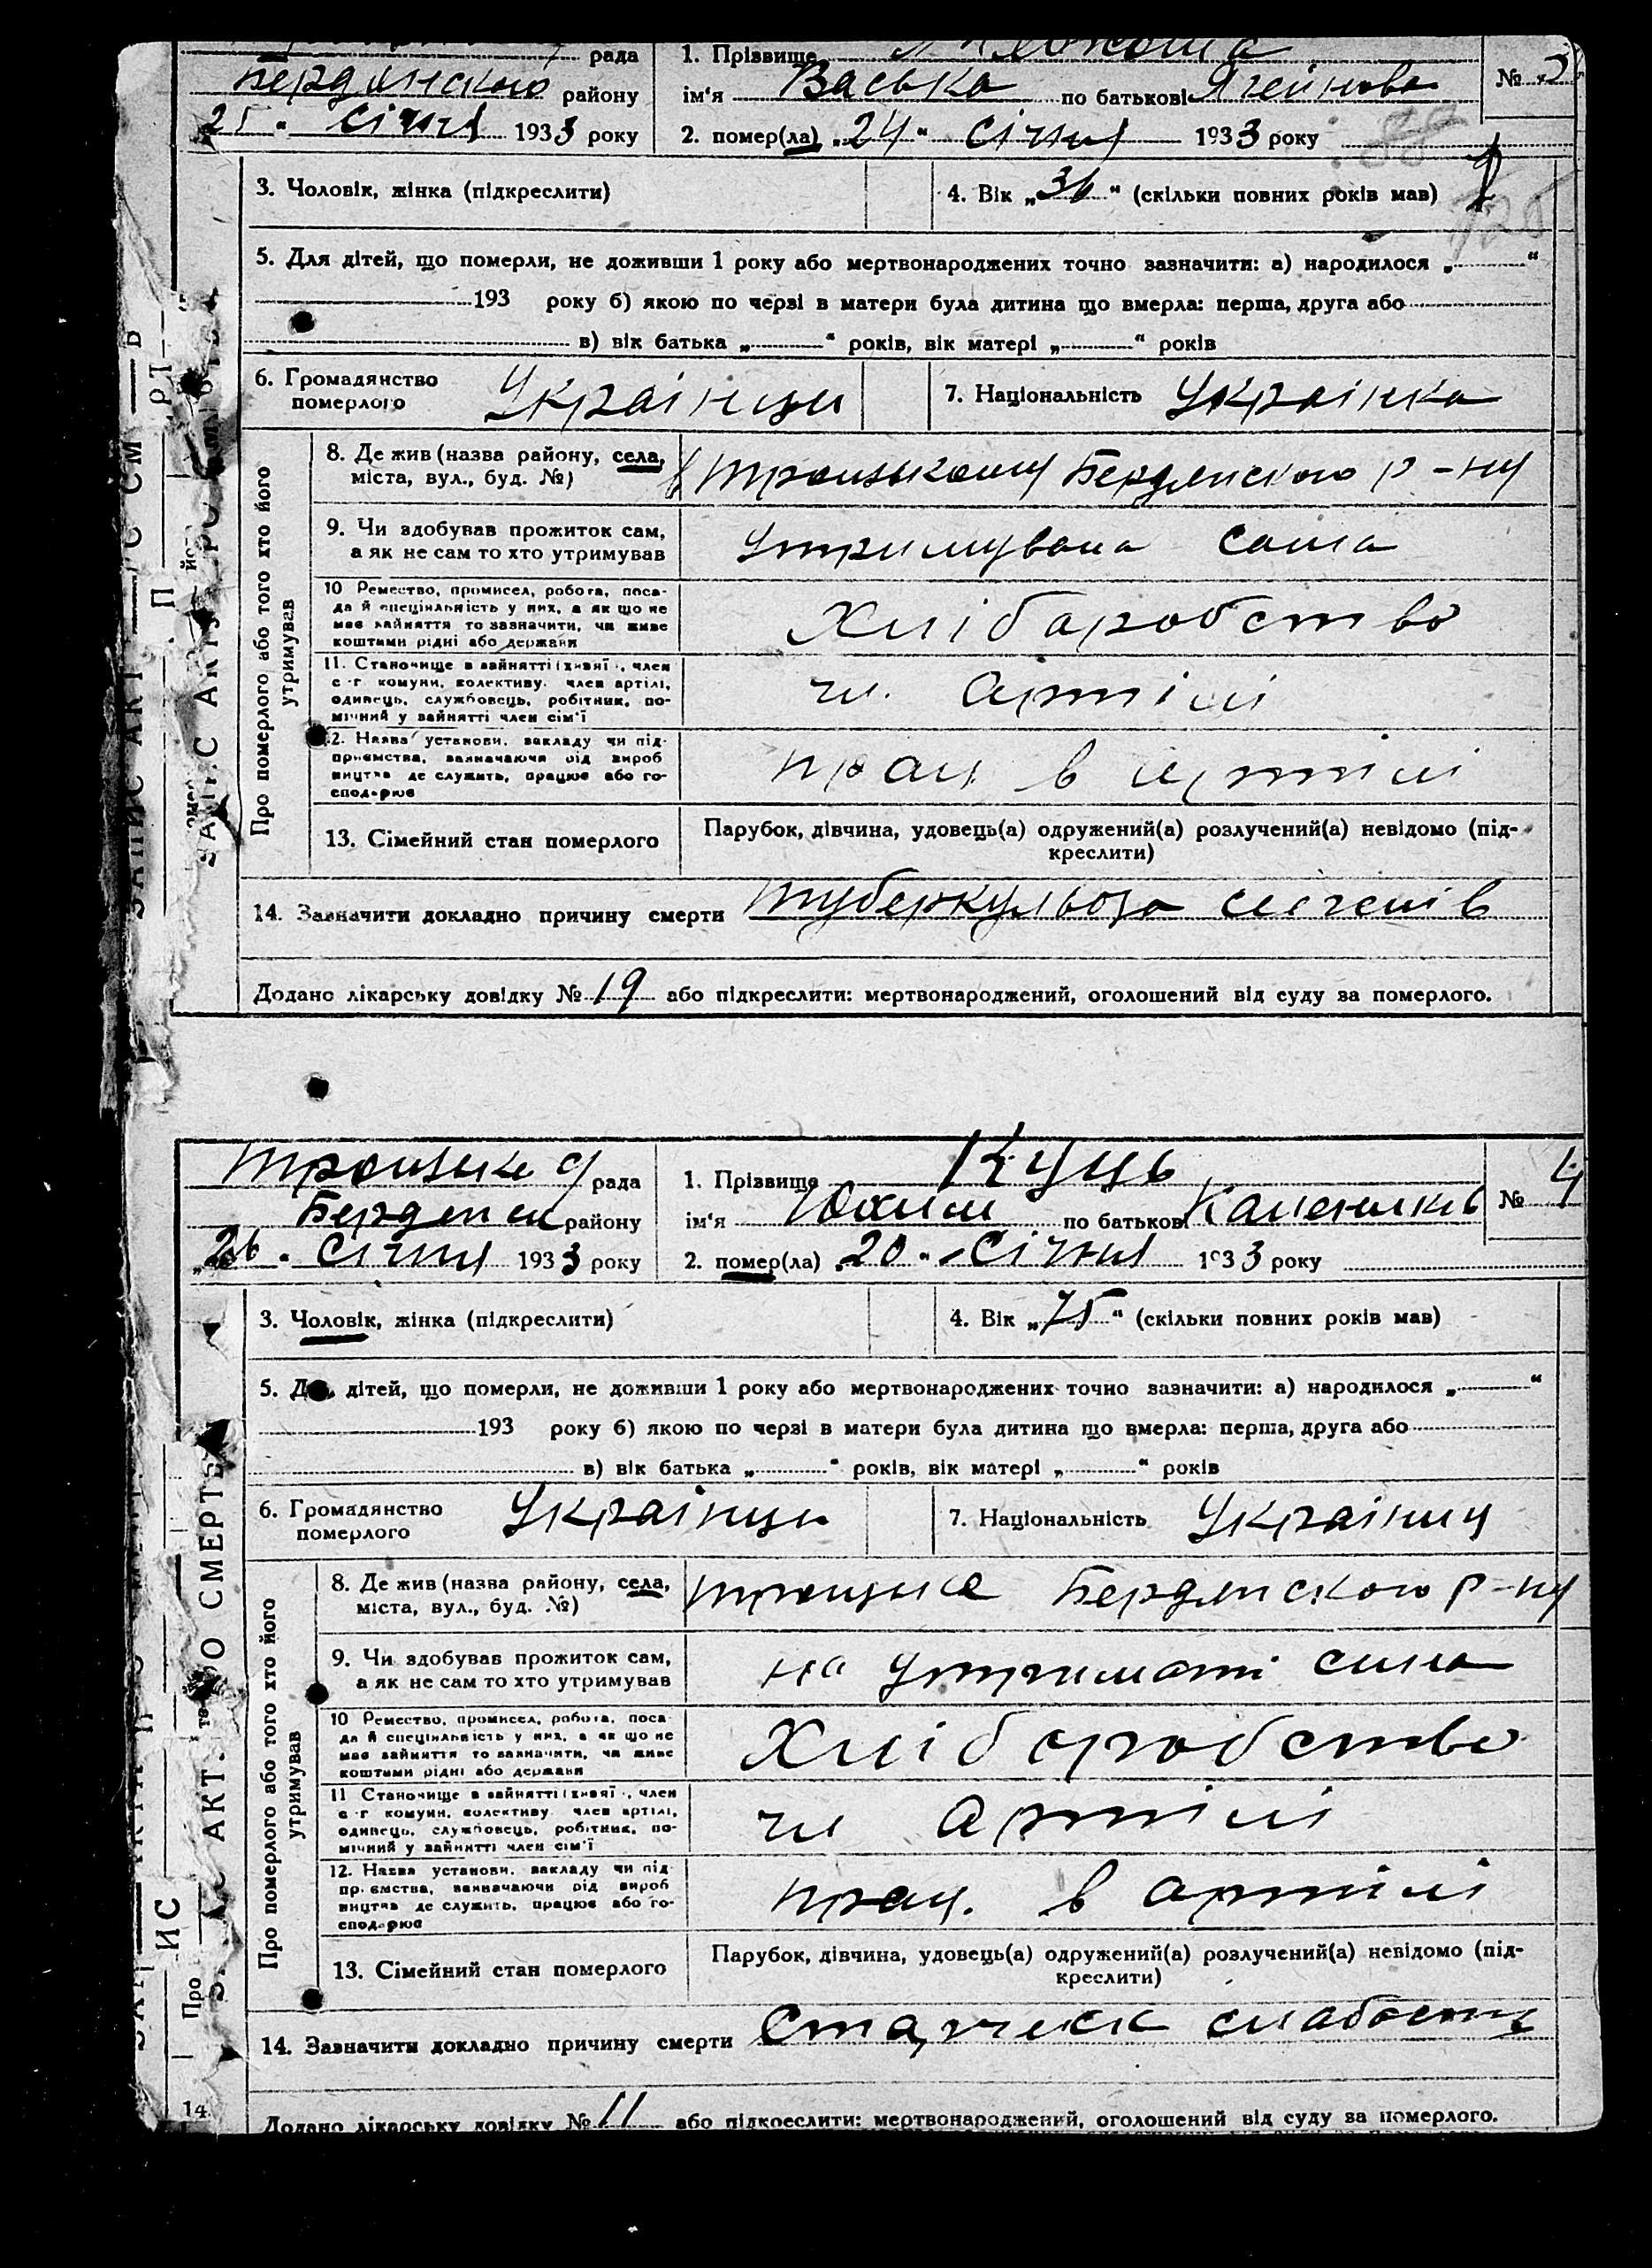 рада
Бердянского району
25 " Січня 1933 року
1. Прізвище
ім'я Васька по батькові
№ 3
2. помер(ла) „24" Січня 1933 року
3. Чоловік, жінка (підкреслити)
4. Вік „36" (скільки повних років мав)
5. Для дітей, що померли, не доживши 1 року або мертвонароджених точно зазначити: а) народилося „ "
193 року б) якою по черзі в матери була дитина що вмерла: перша, друга або
в) вік батька „ " років, вік матері „ " років
6. Громадянство
померлого
Украінци
7. Національність Украінка
Про померлого або того хто його
утримував
8. Де жив (назва району, села,
міста, вул., буд. №)
Бердянского р-ну
9. Чи здобував прожиток сам,
а як не сам то хто утримував
утримувала сама
10 Ремество, промисел, робота, поса-
да й спеціяльність у них, а як що не
має зайняття то зазначити, чи живе
коштами рідні або держави
Хлібаробство
11. Становище в зайнятті (хазяї, член
с.-г. комуни, колективу, член артілі,
одинець, службовець, робітник, по-
мічний у зайнятті член сім'ї
чл. артілі
12. Назва установи, закладу чи під-
приємства, зазначаючи від вироб
ництва де служить, працює або го-
сподарює
прац в артілі
13. Сімейний стан померлого
Парубок, дівчина, удовець(а) одружений(а) розлучений(а) невідомо (під-
креслити)
14. Зазначити докладно причину смерти туберкульоза легенів
Додано лікарську довідку № 19 або підкреслити: мертвонароджений, оголошений від суду за померлого.
рада
району
„26 " Січня 1933 року
1. Прізвище Куць
ім'я Юхим по батькові
№ 4
2. помер(ла) „20 " Січня 1933 року
3. Чоловік, жінка (підкреслити)
4. Вік „75" (скільки повних років мав)
5. Для дітей, що померли, не доживши 1 року або мертвонароджених точно зазначити: а) народилося „ "
193 року б) якою по черзі в матери була дитина що вмерла: перша, друга або
в) вік батька „ " років, вік матері „ " років
6. Громадянство
померлого
Украінци
7. Національність Украіниц
Про померлого або того хто його
утримував
8. Де жив (назва району, села,
міста, вул., буд. №)
Бердянского р-ну
9. Чи здобував прожиток сам,
а як не сам то хто утримував
на утримані сина
10 Ремество, промисел, робота, поса-
да й спеціяльність у них, а як що не
має зайняття то зазначити, чи живе
коштами рідні або держави
Хліборобство
11 Становище в зайнятті (хазяї, член
с.-г. комуни, колективу, член артілі,
одинець, службовець, робітник, по-
мічний у зайнятті член сім'ї
чл артілі
12. Назва установи, закладу чи під-
приємства, зазначаючи від вироб
ництва де служить, працює або го-
сподарює
прац. в артілі
13. Сімейний стан померлого
Парубок, дівчина, удовець(а) одружений(а) розлучений(а) невідомо (під-
креслити)
14. Зазначити докладно причину смерти слабость
Додано лікарську довідку № 11 або підкреслити: мертвонароджений, оголошений від суду за померлого.